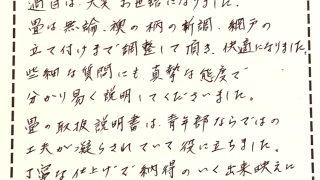 過日は、大変お世話になりました。
畳は無論、襖の柄の新調、網戸の
立て付けまで調整して頂き、快適になりました。
些細な質問にも真摯な態度で
分かり易く説明してくださいました。
畳の取扱説明書は、青年部ならではの
工夫が凝らされていて役に立ちました。
丁寧な仕上げで納得のいく出来映えに